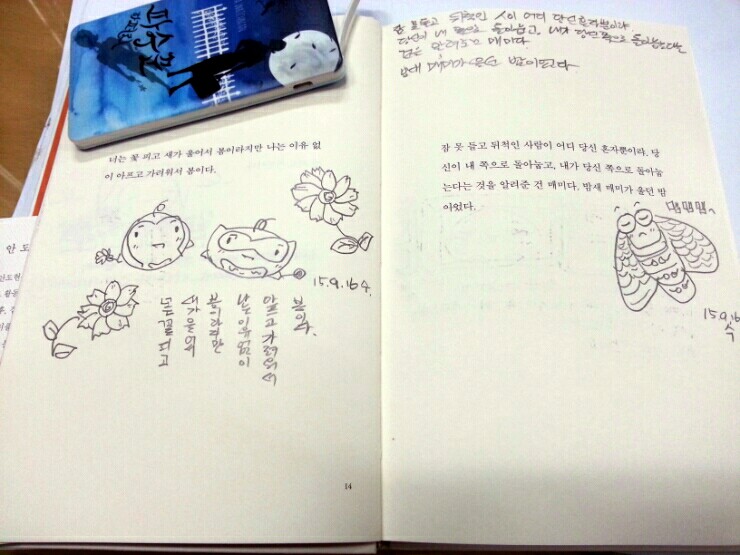 파수꾼
너는 꽃 피고 새가 울어서 봄이라지만 나는 이유 없
이 아프고 가려워서 봄이다.
15.9.16 수.
너는 꽃 피고
새가 울어
봄이라지만
난 이유 없이
아프고 가려워서
봄이다.
14
안도현
잠 못 들고 뒤척인 사람이 어디 당신 혼자뿐이랴
당신이 내 쪽으로 돌아눕고, 내가 당신 쪽으로 돌아눕는다는
것을 알려준 건 매미다.
밤새 매미가 울던 밤이었다.
잠 못 들고 뒤척인 사람이 어디 당신 혼자뿐이랴. 당
신이 내 쪽으로 돌아눕고, 내가 당신 쪽으로 돌아눕
는다는 것을 알려준 건 매미다. 밤새 매미가 울던 밤
이었다.
맴맴맴
15.9.16
수